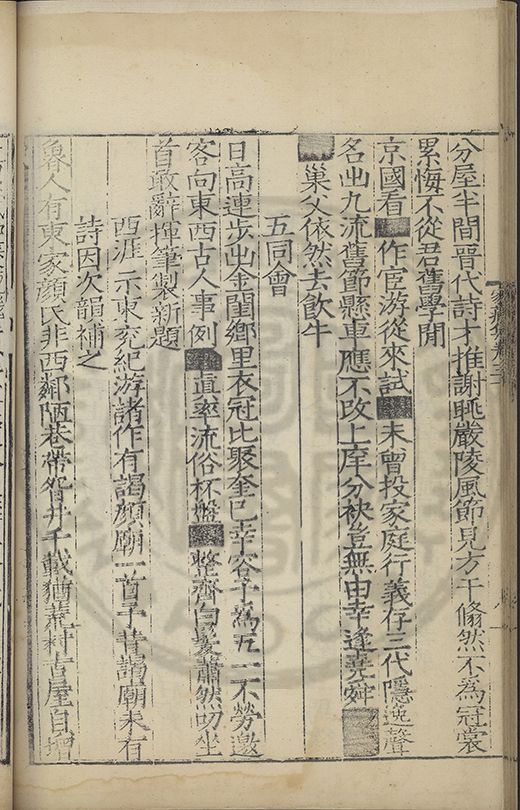 分屋半間晉代詩才推謝眺嚴陵風節見方干翛然不為冠裳
累悔不從君舊學閒
京國看 作宦游從來試 未曾投家庭行義仔三代隱逸聲
名出九流舊節縣車應不改上庠分袂豈無由幸逢堯舜
巢父依然去飲牛
五同會
日高連步出金閨鄉里衣冠比聚奎已幸容予為五一不勞邀
客向東西古人事例 真率流俗杯盤 整齊白髮蕭然叨坐
首敢辭揮筆製新題
西涯示東兖紀游諸作有謁顏廟一首予昔謁廟未有
詩因欠韻補之
魯人有東家顏氏非西鄰陋巷帶眢井千載猶葬村古屋自增